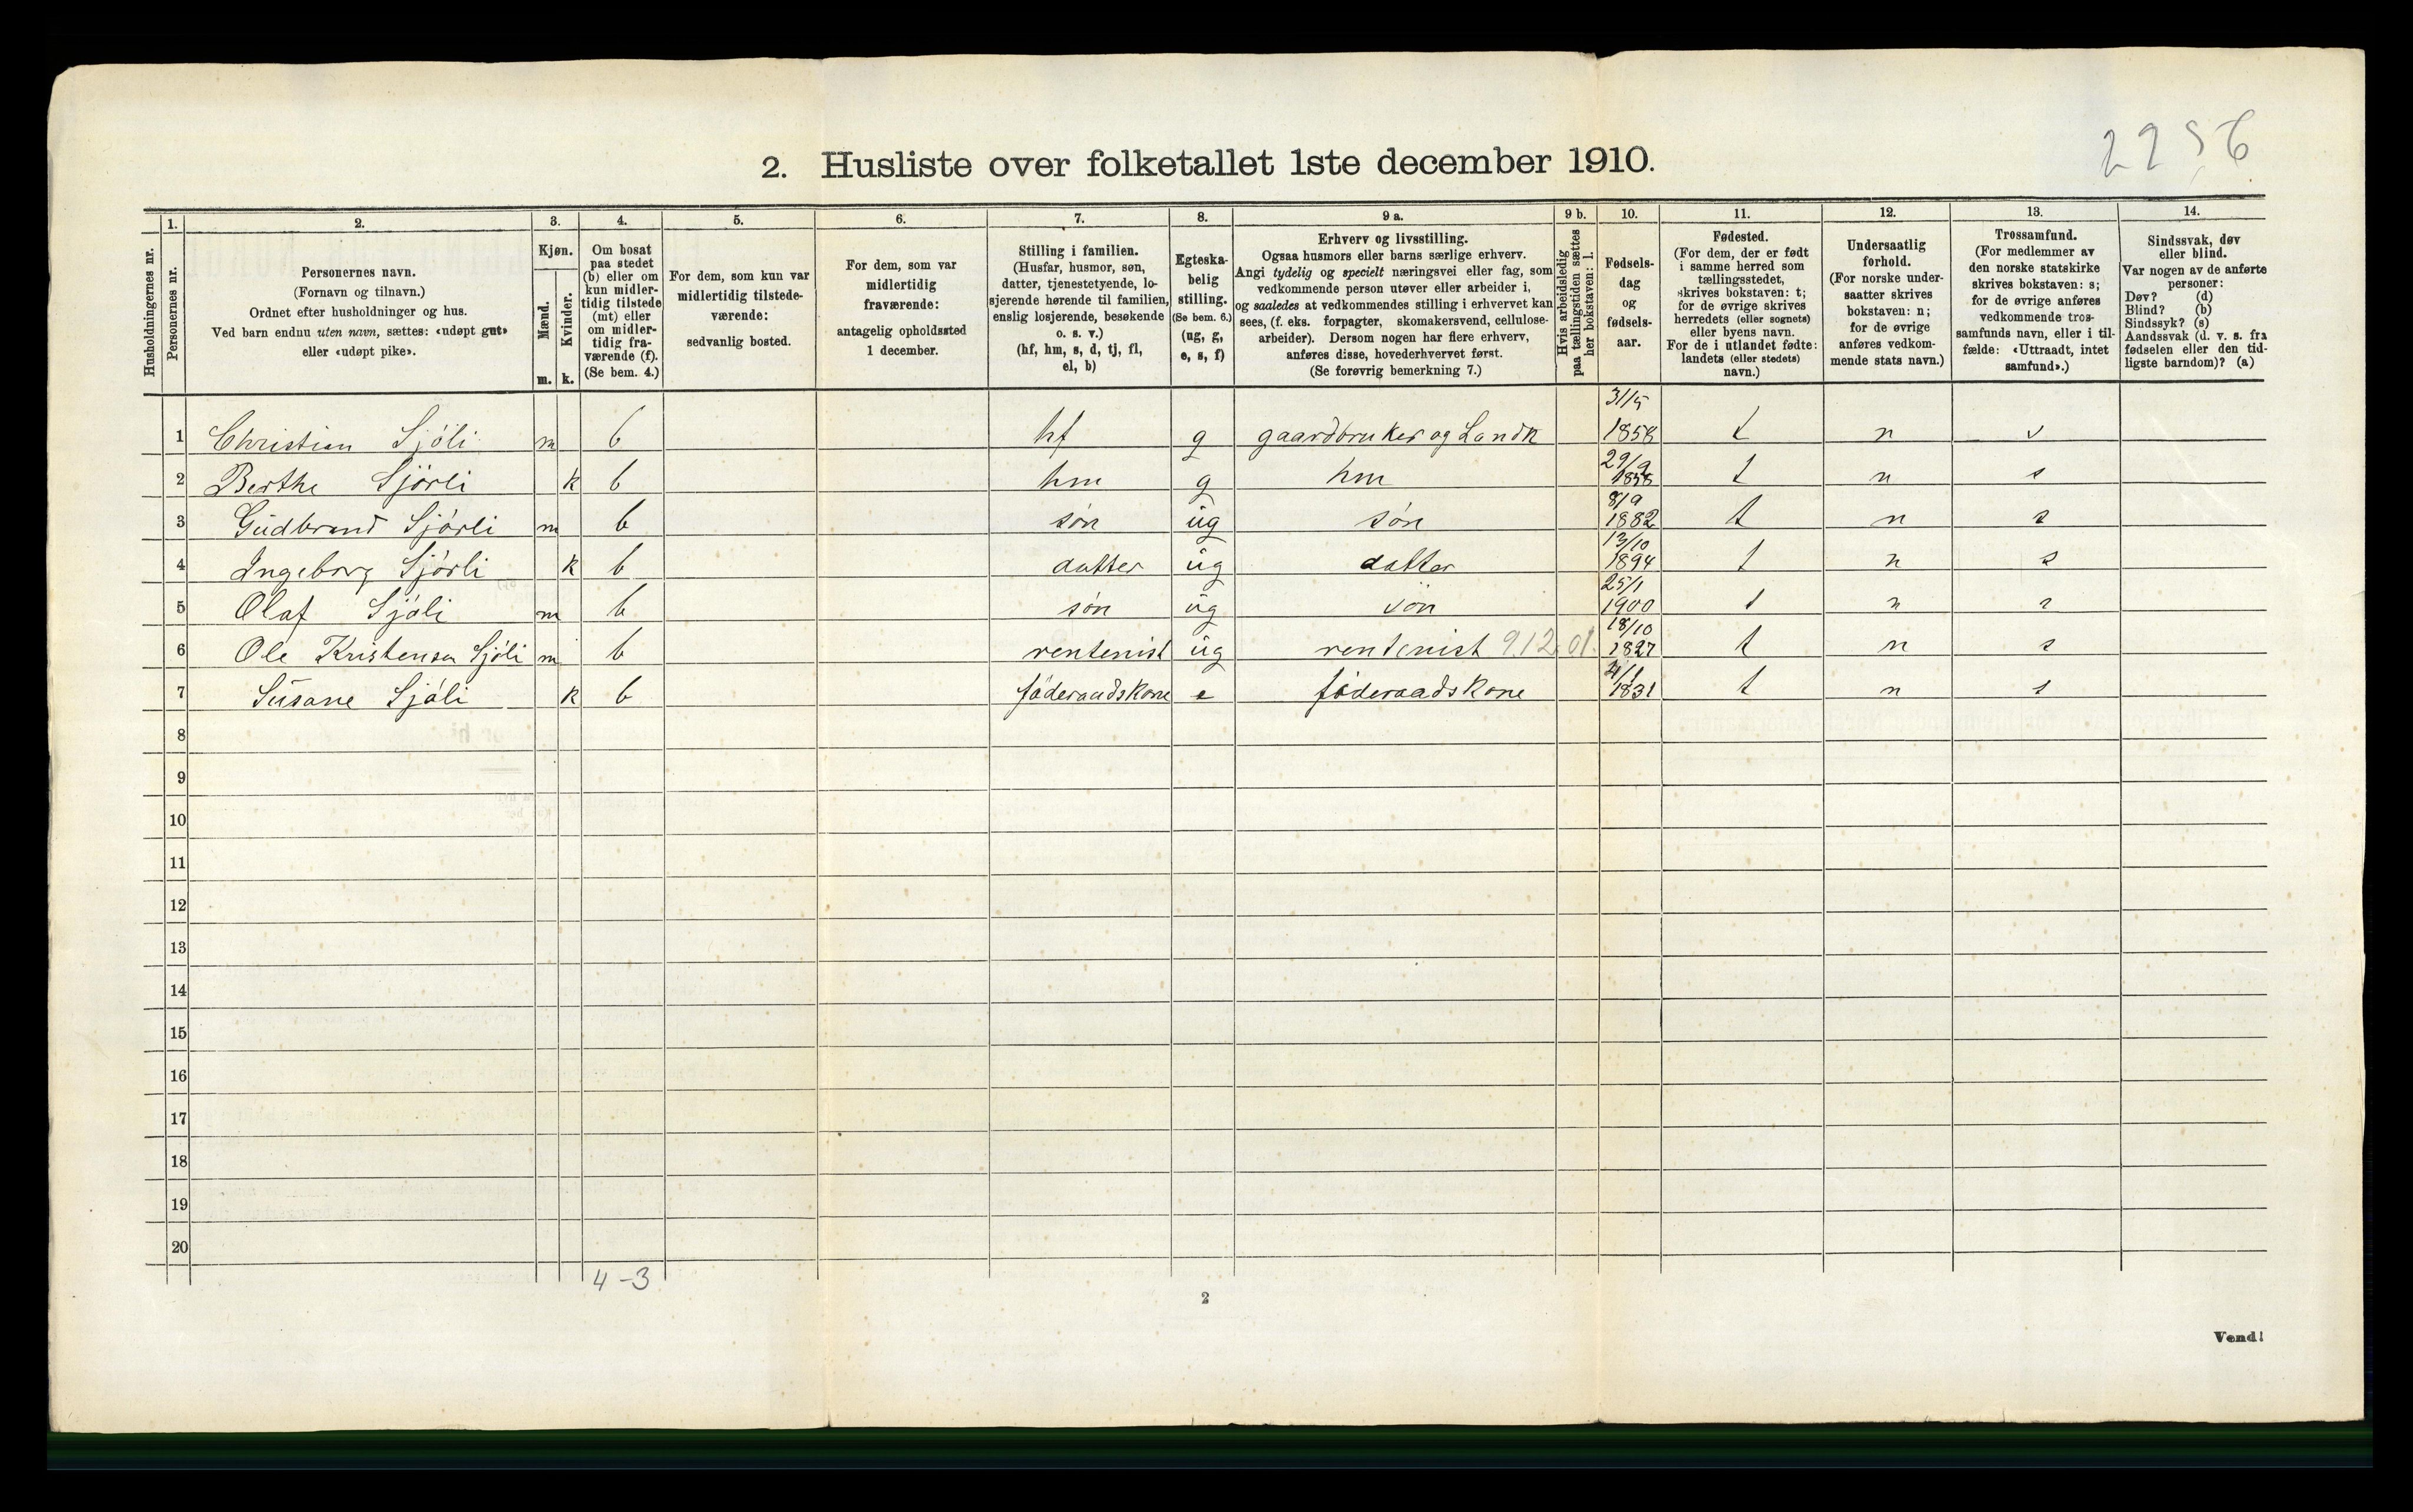 2256
2. Husliste over folketallet 1ste december 1910.
Husholdningernes nr.
1. Personernes nr.
2. Personernes navn.
(Fornavn og tilnavn.)
Ordnet efter husholdninger og hus.
Ved barn endnu uten navn, sættes: «udøpt gut»
eller «udøpt pike».
3. Kjøn.
Mænd. m.
Kvinder. k.
4. Om bosat
paa stedet
(b) eller om
kun midler-
tidig tilstede
(mt) eller
om midler-
tidig fra-
værende (f).
(Se bem. 4.)
5. For dem, som kun var
midlertidig tilstede-
værende:
sedvanlig bosted.
6. For dem, som var
midlertidig
fraværende:
antagelig opholdssted
1 december.
7. Stilling i familien.
(Husfar, husmor, søn,
datter, tjenestetyende, lo-
sjerende hørende til familien,
enslig losjerende, besøkende
o. s. v.)
(hf, hm, s, d, tj, fl,
el, b)
8. Egteska-
belig
stilling.
(Se bem. 6.)
(ug, g,
e, s, f)
9 a. Erhverv og livsstilling.
Ogsaa husmors eller barns særlige erhverv.
Angi tydelig og specielt næringsvei eller fag, som
vedkommende person utøver eller arbeider i,
og saaledes at vedkommendes stilling i erhvervet kan
sees, (f. eks. forpagter, skomakersvend, cellulose-
arbeider). Dersom nogen har flere erhverv,
anføres disse, hovederhvervet først.
(Se forøvrig bemerkning 7.)
9 b. Hvis arbeidsledig
paa tællingstiden sættes
her bokstaven: l.
10. Fødsels-
dag
og
fødsels-
aar.
11. Fødested.
(For dem, der er født
i samme herred som
tællingsstedet,
skrives bokstaven: t;
for de øvrige skrives
herredets (eller sognets)
eller byens navn.
For de i utlandet fødte:
landets (eller stedets)
navn.)
12. Undersaatlig
forhold.
(For norske under-
saatter skrives
bokstaven: n;
for de øvrige
anføres vedkom-
mende stats navn.)
13. Trossamfund.
(For medlemmer av
den norske statskirke
skrives bokstaven: s;
for de øvrige anføres
vedkommende tros-
samfunds navn, eller i til-
fælde: «Uttraadt, intet
samfund».)
14. Sindssvak, døv
eller blind.
Var nogen av de anførte
personer:
Døv? (d)
Blind? (b)
Sindssyk? (s)
Aandssvak (d. v. s. fra
fødselen eller den tid-
ligste barndom)? (a)
1 Christian Sjöli m b hf g gaardbruker og Landh 31/5 1858 t n s
2 Berthe Sjörli k b hm g hm 29/9 1858 t n s
3 Gudbrand Sjörli m b søn ug søn 8/9 1882 t n s
4 Ingeborg Sjörli k b datter ug datter 13/10 1894 t n s
5 Olaf Sjöli m b søn ug søn 25/1 1900 t n s
6 Ole Kristensen Sjöli m b rentenist ug rentenist 912.01. 18/10 1827 t n s
7 Susane Sjöli k b föderaadskone e föderaadskone 4/1 1831 t n s
8
9
10
11
12
13
14
15
16
17
18
19
20
4-3
2
Vend!